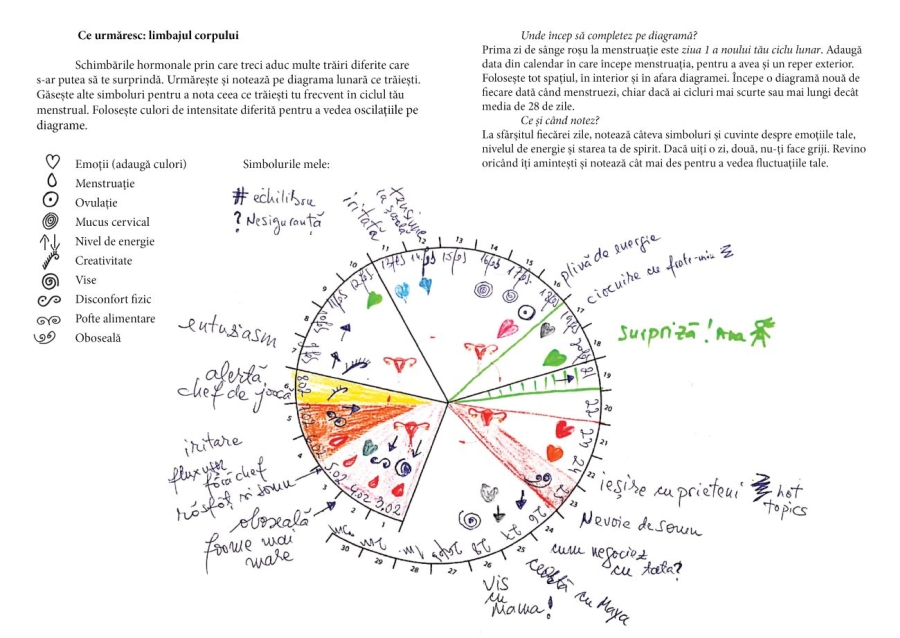 Ce urmăresc: limbajul corpului
Schimbările hormonale prin care treci aduc multe trăiri diferite care
s-ar putea să te surprindă. Urmărește și notează pe diagrama lunară ce trăiești.
Găsește alte simboluri pentru a nota ceea ce trăiești tu frecvent în ciclul tău
menstrual. Folosește culori de intensitate diferită pentru a vedea oscilațiile pe
diagrame.
Emoții (adaugă culori)
Menstruație
Ovulație
Mucus cervical
Nivel de energie
Creativitate
Vise
Disconfort fizic
Pofte alimentare
Oboseală
Simbolurile mele:
# echilibru
? Nesiguranță
Unde încep să completez pe diagramă?
Prima zi de sânge roșu la menstruație este ziua 1 a noului tău ciclu lunar. Adaugă
data din calendar în care începe menstruația, pentru a avea și un reper exterior.
Folosește tot spațiul, în interior și în afara diagramei. Începe o diagramă nouă de
fiecare dată când menstruezi, chiar dacă ai cicluri mai scurte sau mai lungi decât
media de 28 de zile.
Ce și când notez?
La sfârșitul fiecărei zile, notează câteva simboluri și cuvinte despre emoțiile tale,
nivelul de energie și starea ta de spirit. Dacă uiți o zi, două, nu-ți face griji. Revino
oricând îți amintești și notează cât mai des pentru a vedea fluctuațiile tale.
iritată
tensiune
la școală
plivă de energie
ciocnire cu frate-miu
surpriză! Ana
entuziasm
alertă
chef de joacă
iritare
flux
fără chef
răsfăț și somn
oboseală
foame mai
mare
ieșire cu prieteni
hot
topics
Nevoie de somn
cum negociez
cu tata?
ceartă cu Maya
Vis
cu
Mama!
1
2
3
5
7
8
9
10
11
12
13
14
15
16
17
18
19
20
22
23
24
25
26
27
28
29
30
3.02
4.02
5.02
8.02
22
24
25
26
27
28